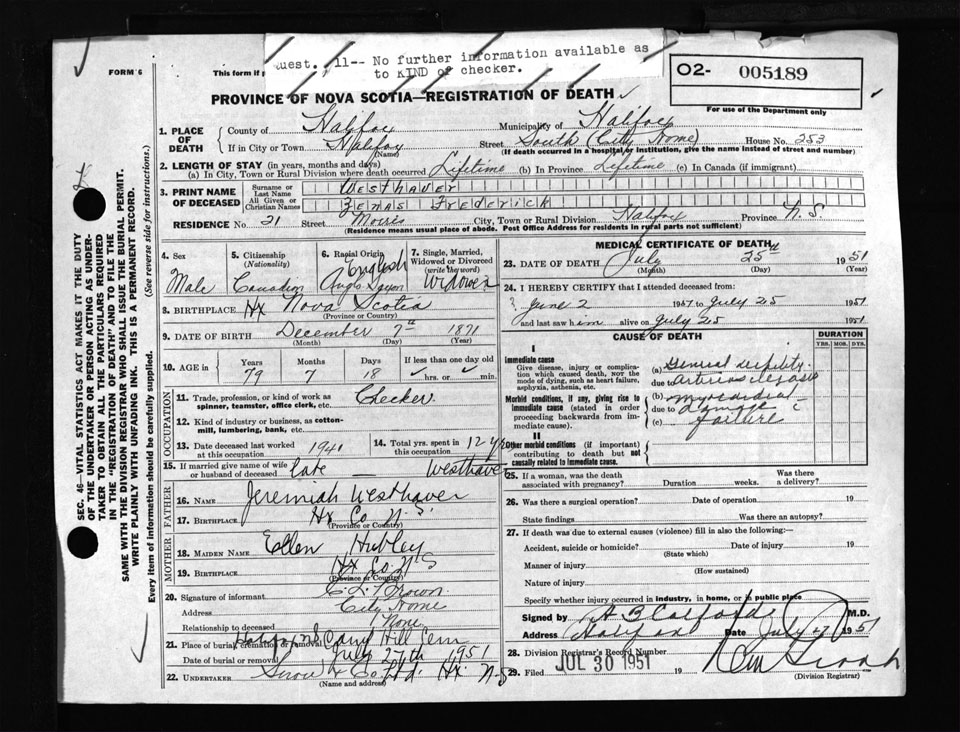 FORM 6
This form if p
Quest. 11-- No further information available as
to KIND of checker.
O2- 005189
For use of the Department only
PROVINCE OF NOVA SCOTIA—REGISTRATION OF DEATH
1. PLACE OF DEATH
County of Halifax
Municipality of Halifax
If in City or Town Halifax
(Name)
Street South (City Home) House No. 253
(If death occurred in a hospital or institution, give the name instead of street and number)
2. LENGTH OF STAY (in years, months and days)
(a) In City, Town or Rural Division where death occurred Lifetime (b) In Province Lifetime (c) In Canada (if immigrant)
3. PRINT NAME OF DECEASED
Surname or Last Name WESTHAVER
All Given or Christian Names ZENAS FREDERICK
RESIDENCE No. 21 Street Morris City, Town or Rural Division Halifax Province N.S.
(Residence means usual place of abode. Post Office Address for residents in rural parts not sufficient)
4. Sex
Male
5. Citizenship (Nationality)
Canadian
6. Racial Origin
English
Anglo Saxon
7. Single, Married, Widowed or Divorced (write the word)
Widower
8. BIRTHPLACE Hx Nova Scotia
(Province or Country)
9. DATE OF BIRTH December 7th 1871
(Month) (Day) (Year)
10. AGE in
Years Months Days If less than one day old
79 7 18 hrs. or min.
OCCUPATION
11. Trade, profession, or kind of work as spinner, teamster, office clerk, etc. Checker
12. Kind of industry or business, as cotton-mill, lumbering, bank, etc.
13. Date deceased last worked at this occupation 1941
14. Total yrs. spent in this occupation 12 yrs
15. If married give name of wife or husband of deceased late — Westhaver
FATHER
16. NAME Jeremiah Westhaver
17. BIRTHPLACE Hx Co N.S.
(Province or Country)
MOTHER
18. MAIDEN NAME Ellen Hubley
19. BIRTHPLACE Hx Co. N.S
(Province or Country)
20. Signature of informant Brown
Address City Home
Relationship to deceased None
21. Place of burial, cremation or removal Halifax N.S. Camp Hill Cem
Date of burial or removal July 27th 1951
22. UNDERTAKER Snow & Co Ltd. Hx. N.S
(Name and address)
MEDICAL CERTIFICATE OF DEATH
23. DATE OF DEATH July 25th 1951
(Month) (Day) (Year)
24. I HEREBY CERTIFY that I attended deceased from:
June 2 1947 to July 25 1951
and last saw him alive on July 25 1951
CAUSE OF DEATH
DURATION
YRS. MOS. DYS.
I
Immediate cause
Give disease, injury or complication which caused death, NOT the mode of dying, such as heart failure, asphyxia, asthenia, etc.
(a) General debility
due to arteriosclerosis
Morbid conditions, if any, giving rise to immediate cause (stated in order proceeding backwards from immediate cause).
(b) myocardial
due to damage c
(c) failure
II
Other morbid conditions (if important) contributing to death but not causally related to immediate cause.
25. If a woman, was the death associated with pregnancy? Duration weeks. Was there a delivery?
26. Was there a surgical operation? Date of operation 19
State findings Was there an autopsy?
27. If death was due to external causes (violence) fill in also the following:—
Accident, suicide or homicide? Date of injury 19
(State which)
Manner of injury
(How sustained)
Nature of injury
Specify whether injury occurred in industry, in home, or in public place
Signed by M.D.
Address Halifax Date July 27 1951
28. Division Registrar's Record Number
29. Filed JUL 30 1951 19
(Division Registrar)
SEC. 46—VITAL STATISTICS ACT MAKES IT THE DUTY
OF THE UNDERTAKER OR PERSON ACTING AS UNDER-
TAKER TO OBTAIN ALL THE PARTICULARS REQUIRED
IN THE "REGISTRATION OF DEATH" AND TO FILE THE
SAME WITH THE DIVISION REGISTRAR WHO SHALL ISSUE THE BURIAL PERMIT.
WRITE PLAINLY WITH UNFADING INK. THIS IS A PERMANENT RECORD.
Every item of information should be carefully supplied. (See reverse side for instructions.)